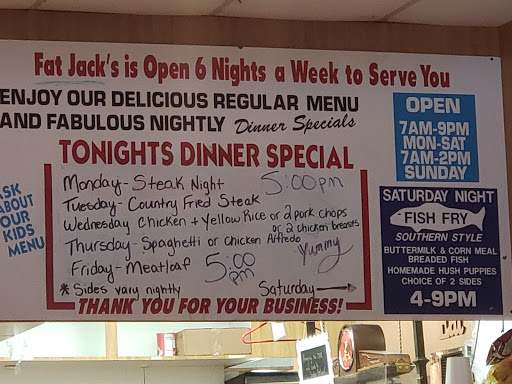 Fat Jack's is Open 6 Nights a Week to Serve You
ENJOY OUR DELICIOUS REGULAR MENU
AND FABULOUS NIGHTLY Dinner Specials
TONIGHTS DINNER SPECIAL
Monday - Steak Night 5:00pm
Tuesday - Country Fried Steak
Wednesday Chicken + Yellow Rice or 2 pork chops
or 2 chicken breasts
Thursday - Spaghetti or Chicken Alfredo
Yummy
Friday - Meatloaf 5:00
PM
* Sides vary nightly Saturday
THANK YOU FOR YOUR BUSINESS!
ASK
ABOUT
OUR
KIDS
MENU
OPEN
7AM-9PM
MON-SAT
7AM-2PM
SUNDAY
SATURDAY NIGHT
FISH FRY
SOUTHERN STYLE
BUTTERMILK & CORN MEAL
BREADED FISH
HOMEMADE HUSH PUPPIES
CHOICE OF 2 SIDES
4-9PM